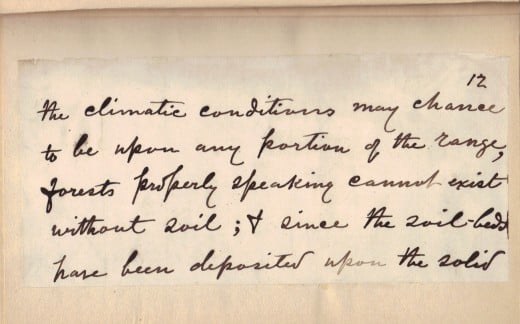 12
the climatic conditions may chance
to be upon any portion of the range,
forests properly speaking cannot exist
without soil; & since the soil-beds
have been deposited upon the solid